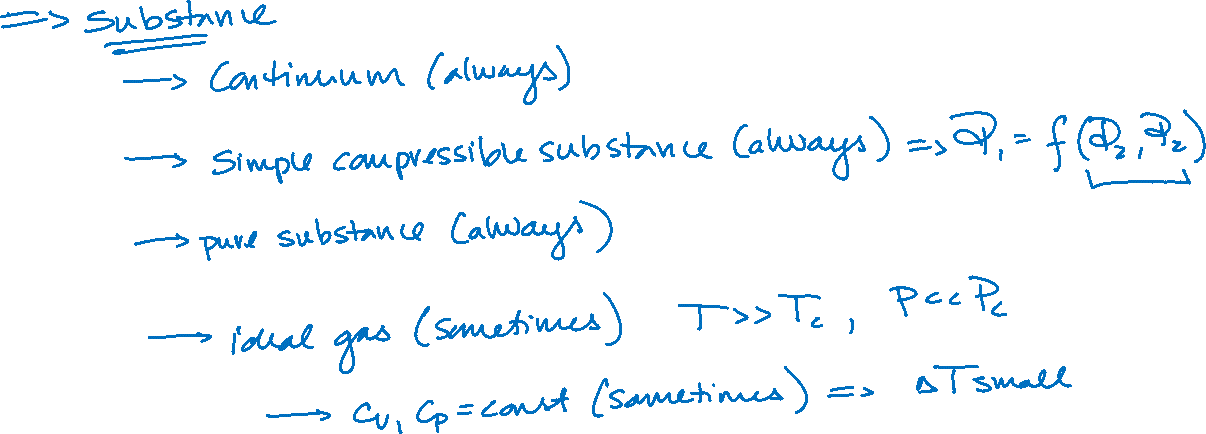 => Substance
→ Continuum (always)
→ Simple compressible substance (always) => P₁ = f(P₂, P₂)
→ pure substance (always)
→ ideal gas (sometimes) T>>Tc, P<<Pc
→ Cv, Cp = const (sometimes) => ΔT small